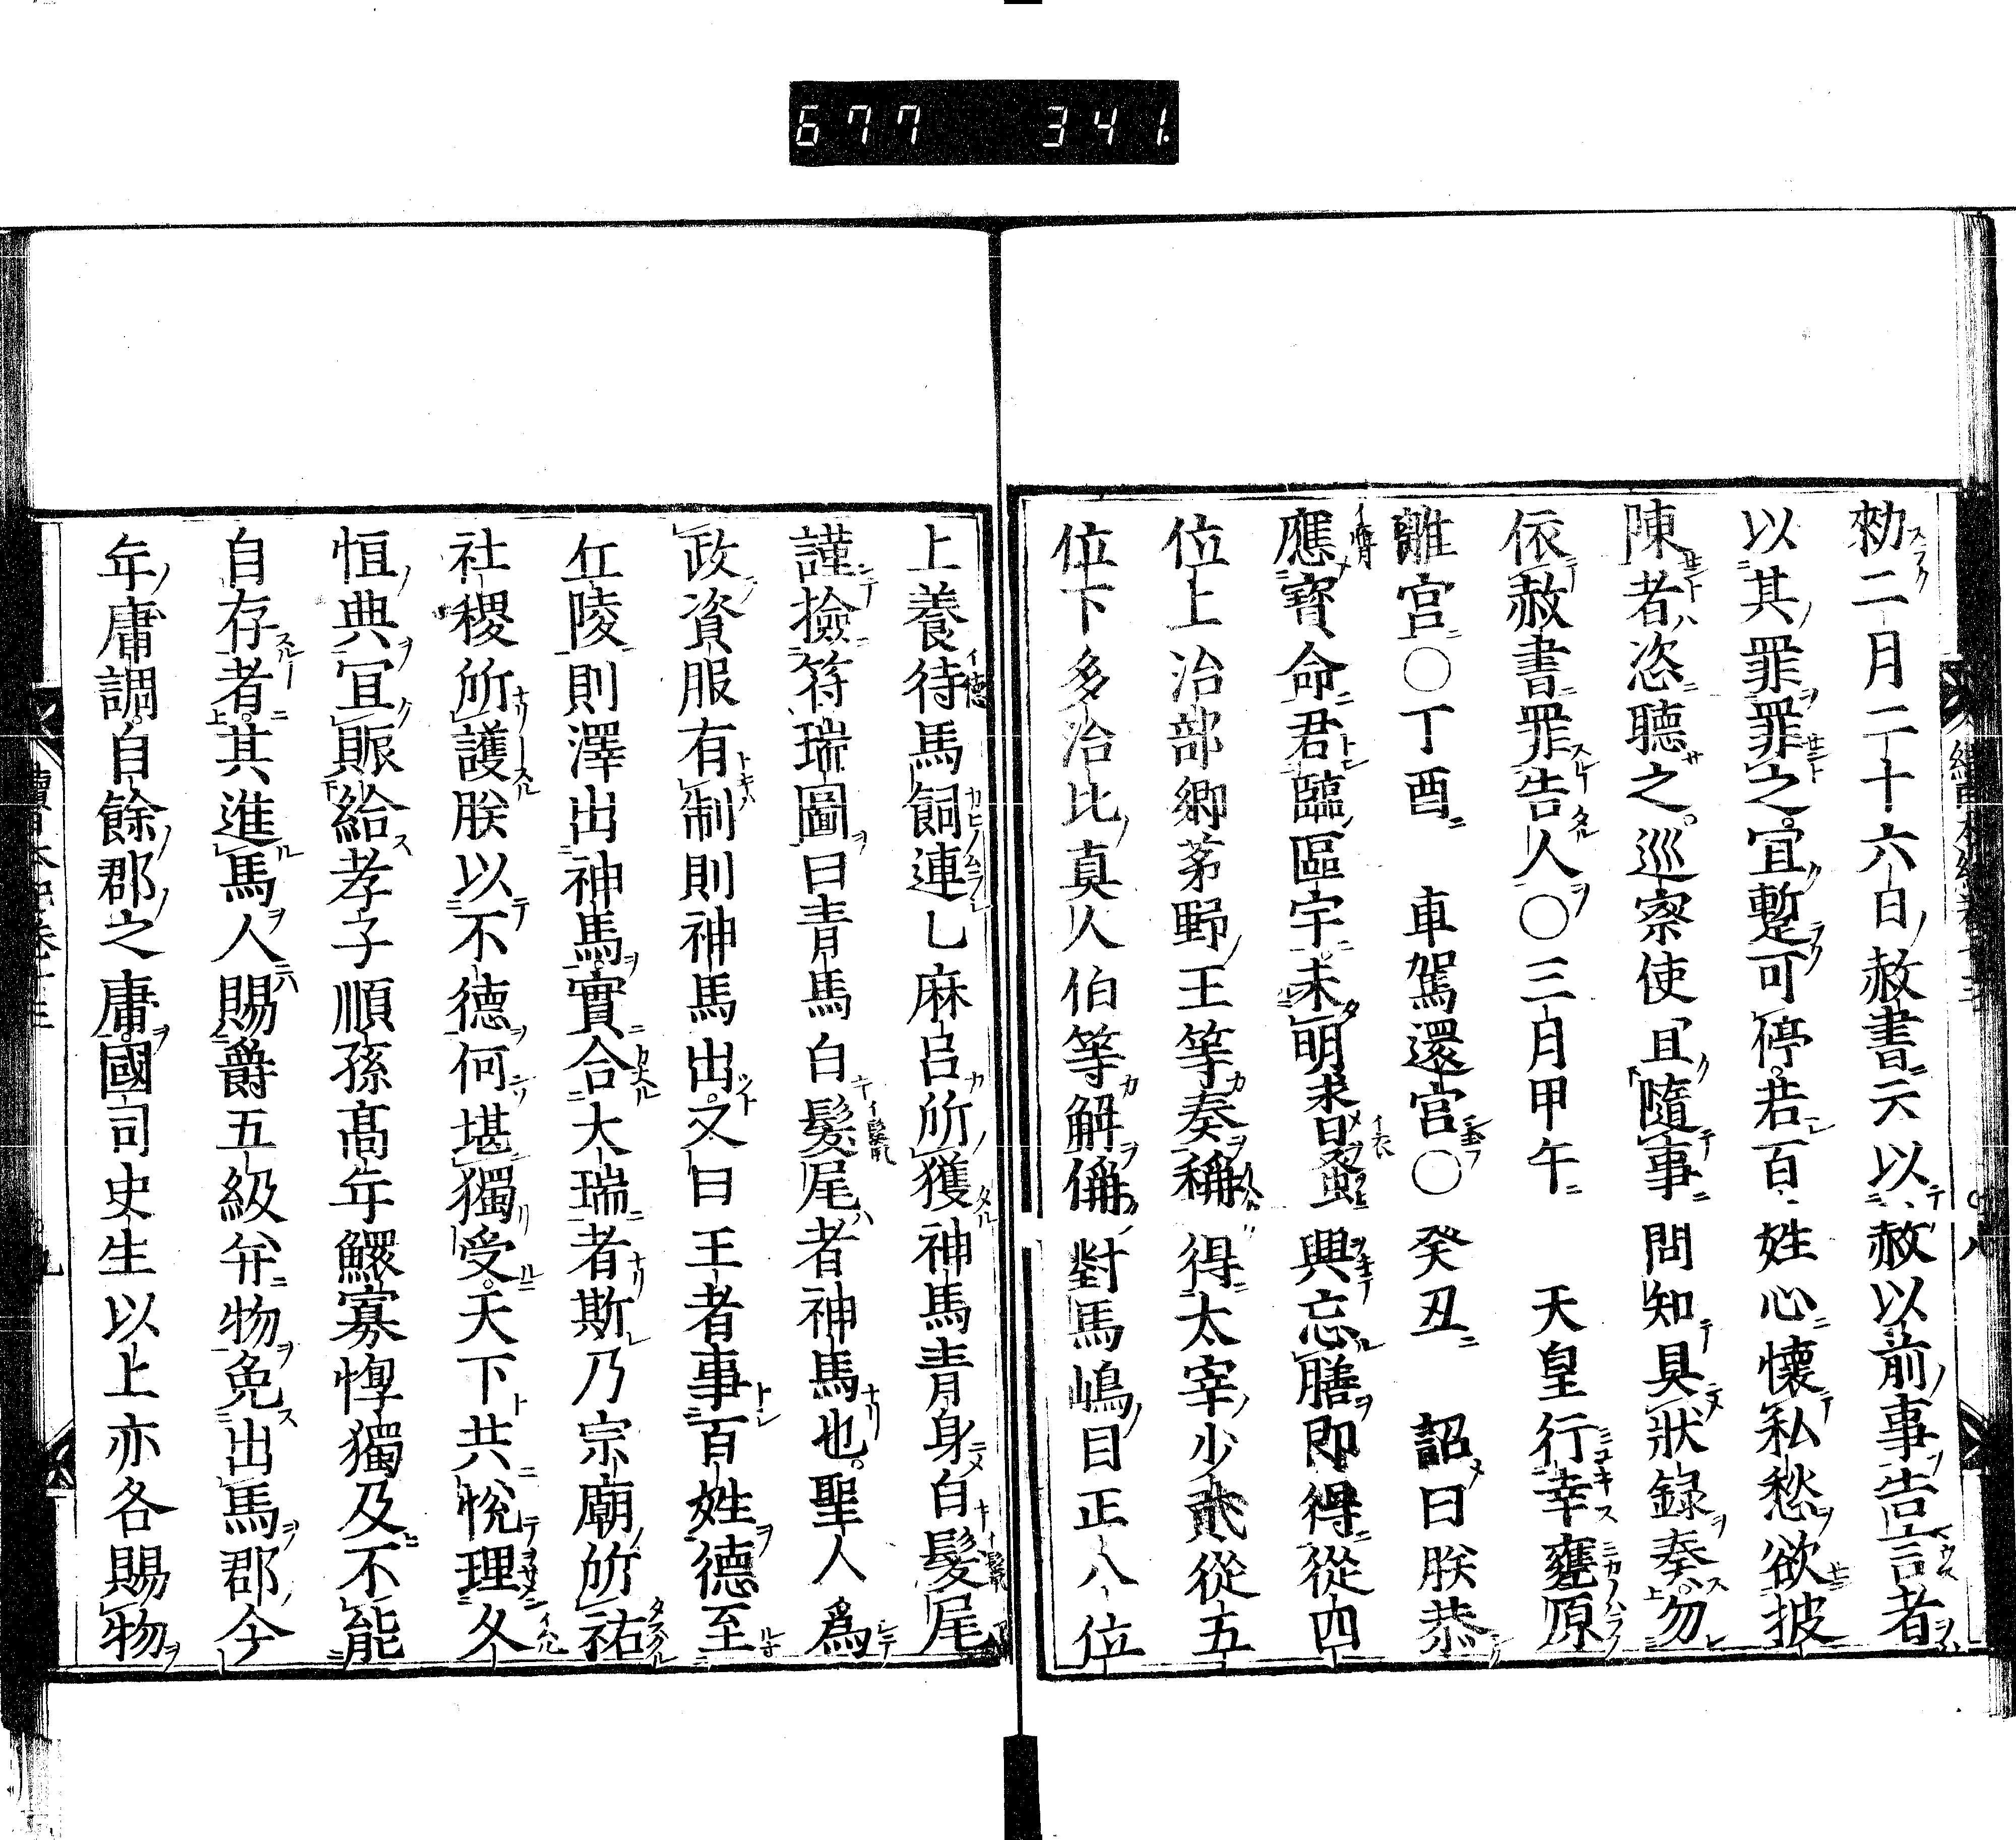 677 341
勑二月二十六日赦書云以赦以前事告言者
以其罪罪之宜暫可停若百姓心懷私愁欲披
陳者恣聽之巡察使且隨事問知具狀録奏勿
依赦書罪告人〇三月甲午 天皇行幸甕原
離宮〇丁酉 車駕還宮〇癸丑 詔曰朕恭
應寶命君臨區宇未明求衣日昃忘膳即得從四
位上治部卿茅野王等奏稱得太宰少貳從五
位下多治比真人伯等解偁對馬嶋目正八位
上養待馬飼連乙麻呂所獲神馬青身白髮尾
謹撿符瑞圖曰青馬白髮尾者神馬也聖人爲
政資服有制則神馬出又曰王者事百姓德至
丘陵則澤出神馬實合大瑞者斯乃宗廟所祐
社稷所護朕以不德何堪獨受天下共悅理久
恒典宜賑給孝子順孫髙年鰥寡惸獨及不能
自存者其進馬人賜爵五級并物免出馬郡今
年庸調自餘郡之庸國司史生以上亦各賜物